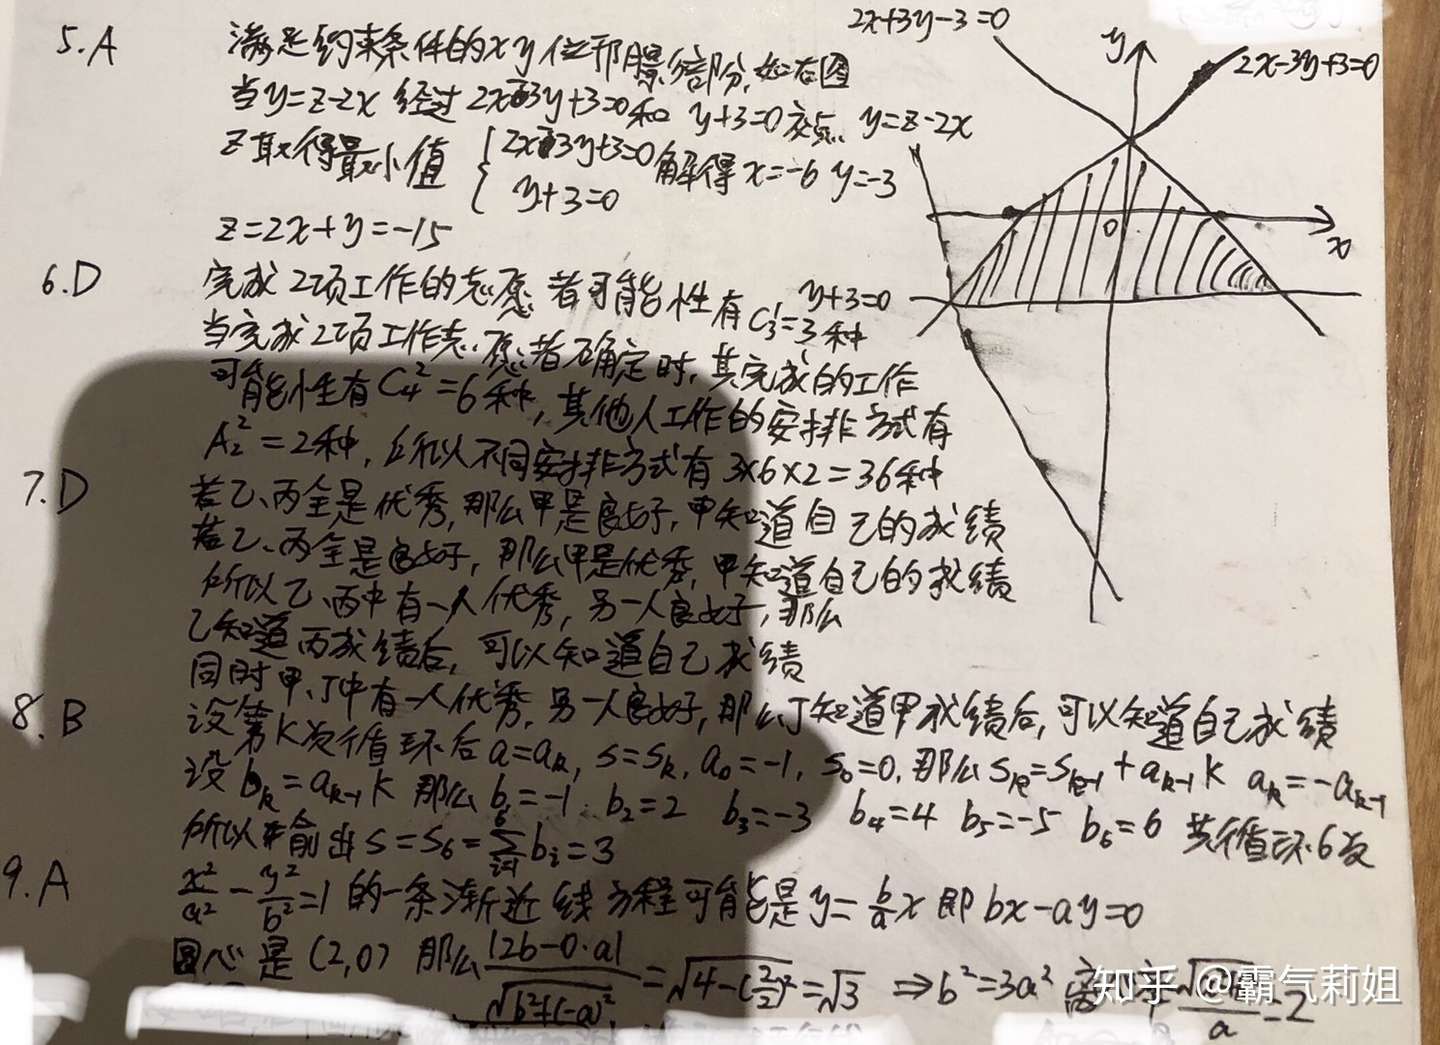 2x+3y-3=0
y
2x-3y+3=0
5.A 满足约束条件的xy位于阴影部分,如右图
当y=z-2x 经过 2x-3y+3=0和 y+3=0交点 y=z-2x
z取得最小值 {2x-3y+3=0 y+3=0 解得 x=-6 y=-3
z=2x+y=-15
0
x
y+3=0
6.D 完成2项工作的志愿者可能性有C₃¹=3种
当完成2项工作志愿者确定时,其完成的工作
可能性有C₄²=6种,其他人工作的安排方式有
A₂²=2种,所以不同安排方式有3×6×2=36种
7.D 若乙、丙全是优秀,那么甲是良好,甲知道自己的成绩
若乙、丙全是良好,那么甲是优秀,甲知道自己的成绩
所以乙、丙中有一人优秀,另一人良好,那么
乙知道丙成绩后,可以知道自己成绩
同时甲、丁中有一人优秀,另一人良好,那么丁知道甲成绩后,可以知道自己成绩
8.B 设第K次循环后a=aₖ, s=sₖ, a₀=-1, s₀=0, 那么sₖ=sₖ₋₁+aₖ₋₁K aₖ=-aₖ₋₁
设bₖ=aₖ₋₁K 那么b₁=-1 b₂=2 b₃=-3 b₄=4 b₅=-5 b₆=6 共循环6次
所以输出s=s₆=∑⁶ᵢ₌₁bᵢ=3
9.A x²/a²-y²/b²=1 的一条渐近线方程可能是 y=b/a x 即 bx-ay=0
圆心是(2,0) 那么 |2b-0·a|/√(b²+(-a)²)=√(4-(2/2)²)=√3 ⇒b²=3a² =2
知乎 @霸气莉姐